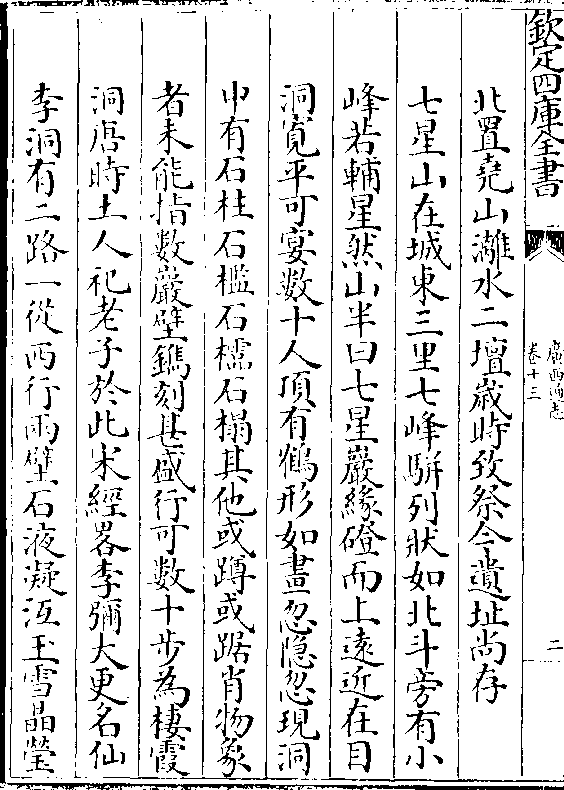 欽定四庫全書
廣西通志
卷十三
二
北置堯山灕水二壇歳時致祭今遺址尚存
七星山在城東三里七峰駢列狀如北斗旁有小
峰若輔星然山半曰七星巖緣磴而上遠近在目
洞寛平可宴數十人頂有鶴形如畫忽隠忽現洞
中有石柱石檻石檽石榻其他或蹲或踞肖物象
者未能指數巖壁鐫刻甚盛行可數十步為棲霞
洞唐時土人祀老子於此宋經畧李彌大更名仙
李洞有二路一從西行兩壁石液凝沍玉雪晶瑩